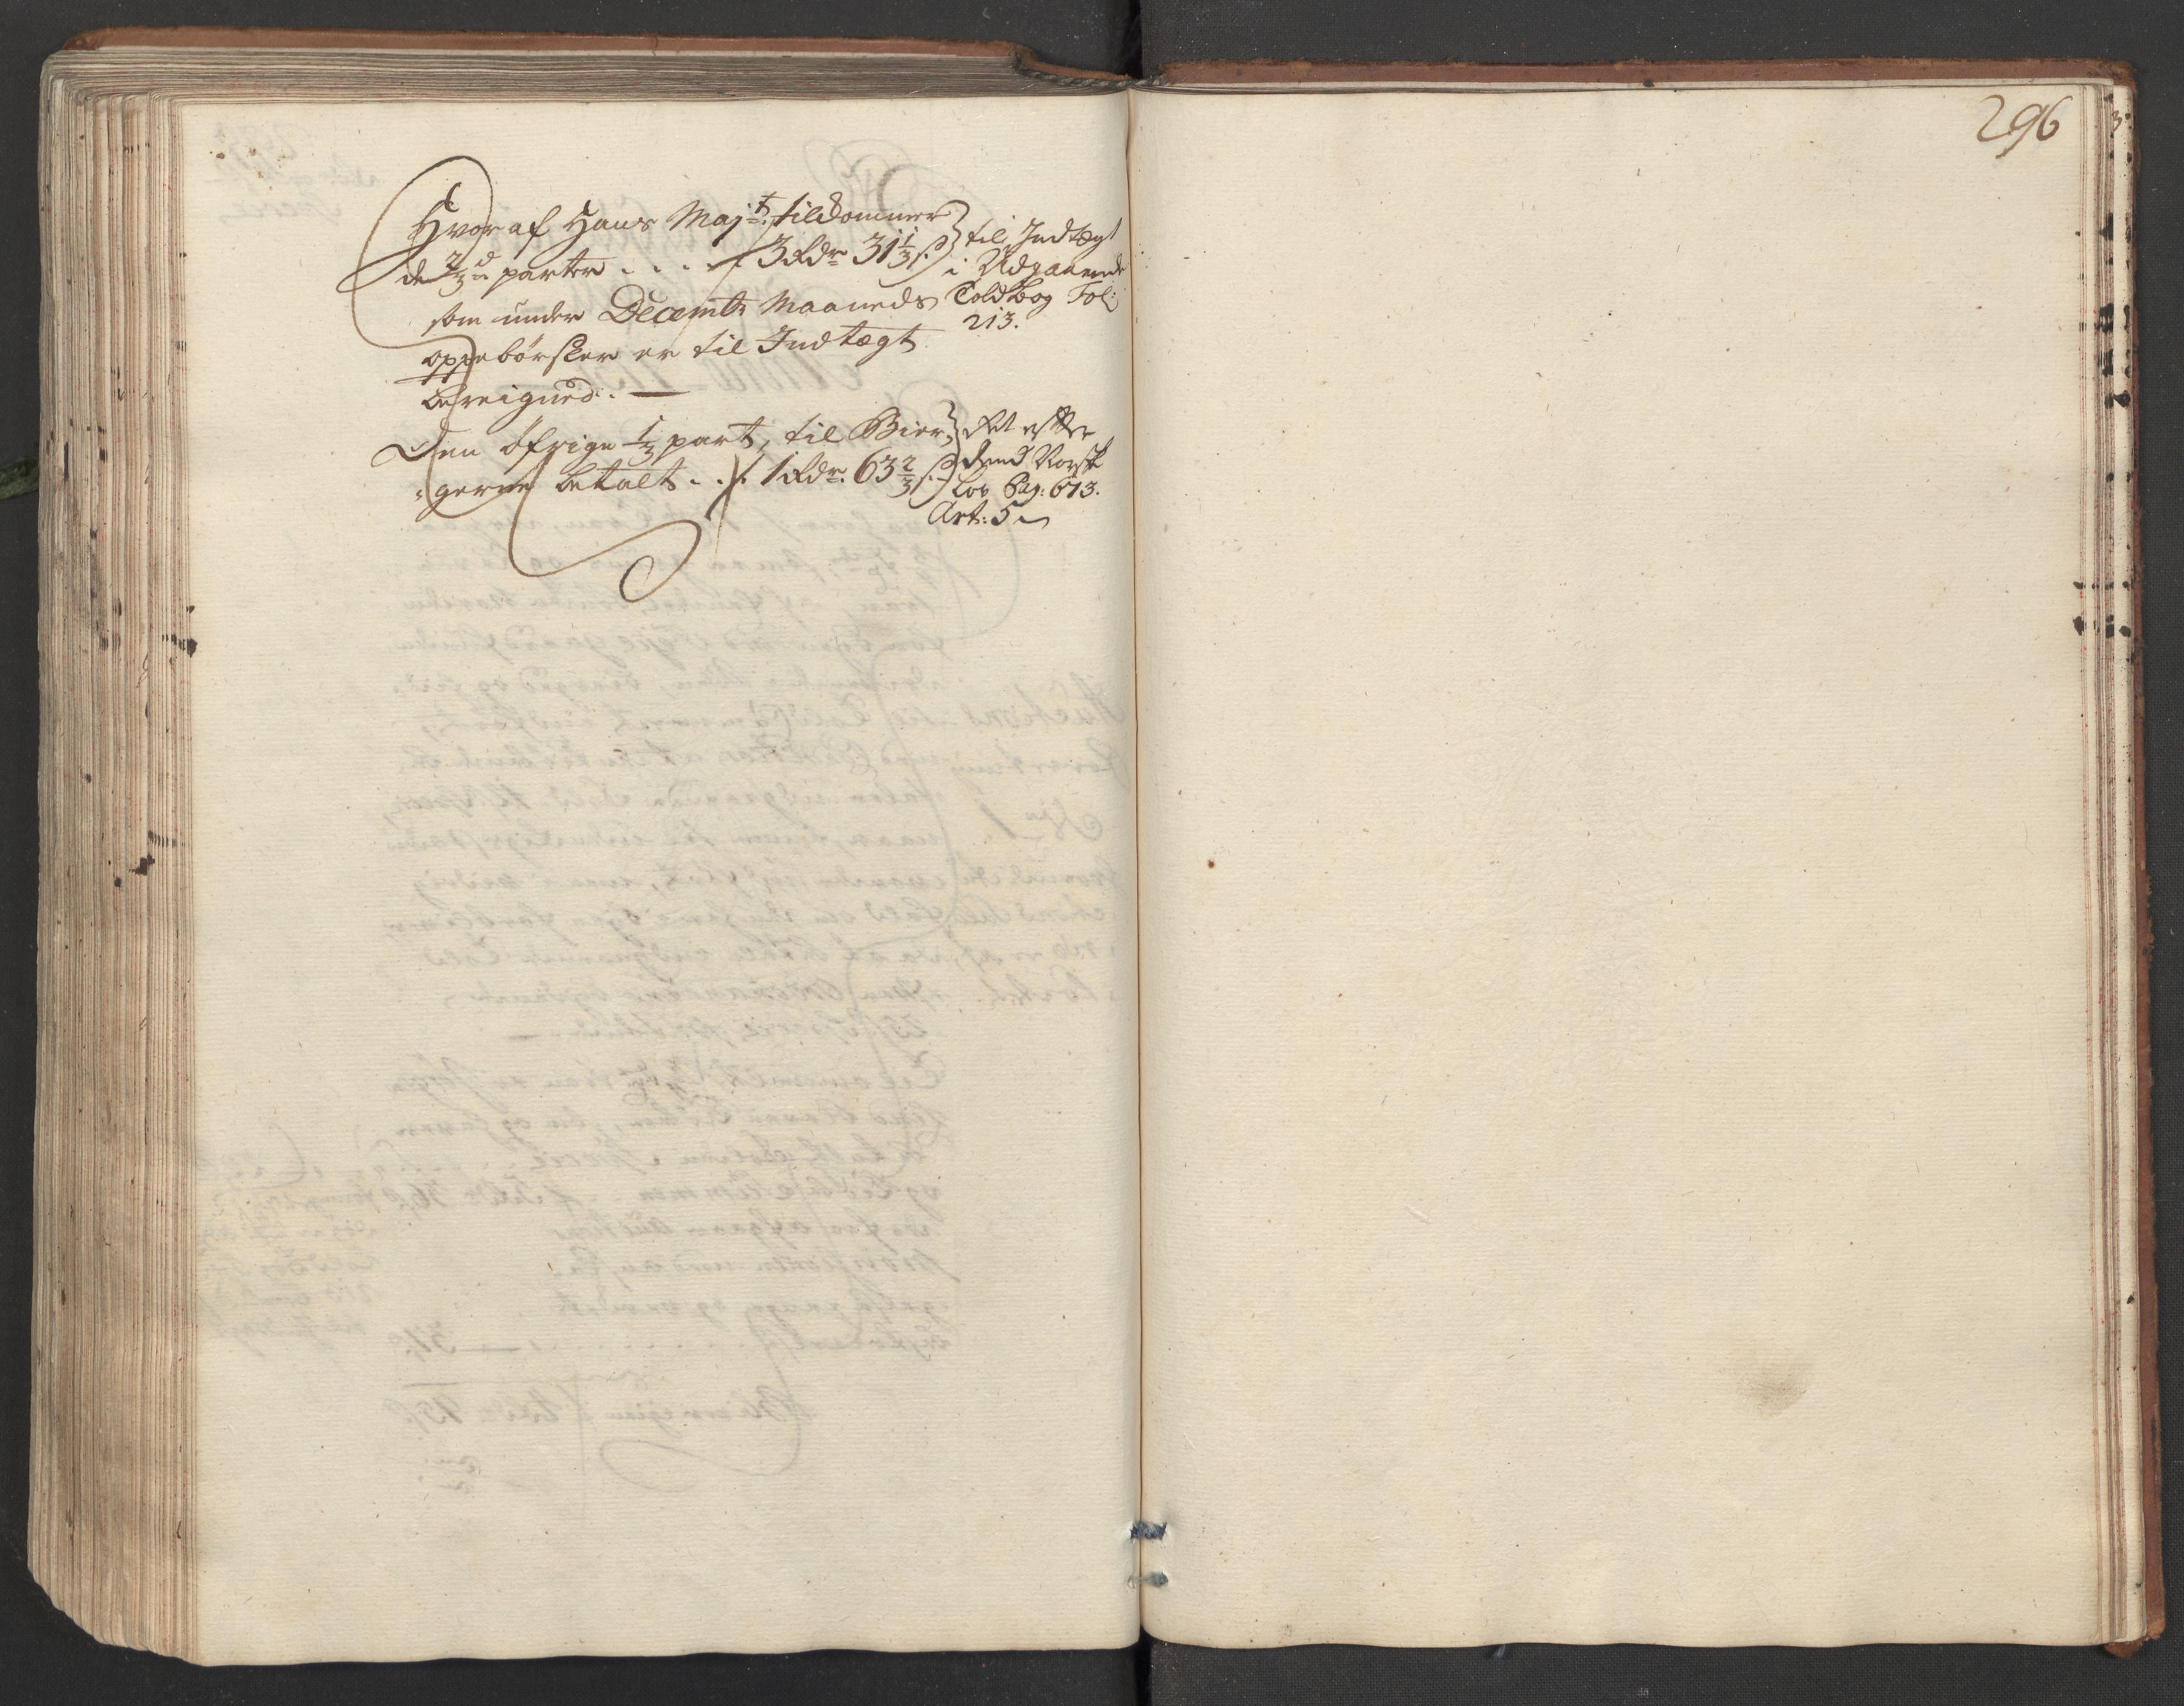 296
Hvoraf Hans Maj:ts tilkommer
de 2/3d parter . . . . 3 Rdr 31 1/3 ß
som under Decembr Maaneds
oppebørsler er til Indtægt
bereigned. —
til Indtægt
i Udgaaende
Toldbog Fol:
213.
Den øfrige 1/3 part, til Bier,
gerne betalt . . . 1 Rdr. 63 2/3 ß
efter
dend Norsk
Lov Pag: 673.
Art: 5